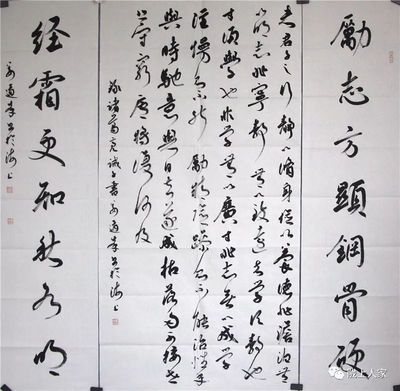 勵志方顯鋼骨硬
夫君子之行靜以脩身儉以養德非澹泊無
以明志非寧靜無以致遠夫學須靜也
才須學也非學無以廣才非志無以成學
淫慢則不能勵精險躁則不能治性年
與時馳意與日去遂成枯落多不接世
悲守窮廬將復何及
录諸葛亮誡子書 书於海上
经霜更知秋水明
书於海上
上人家